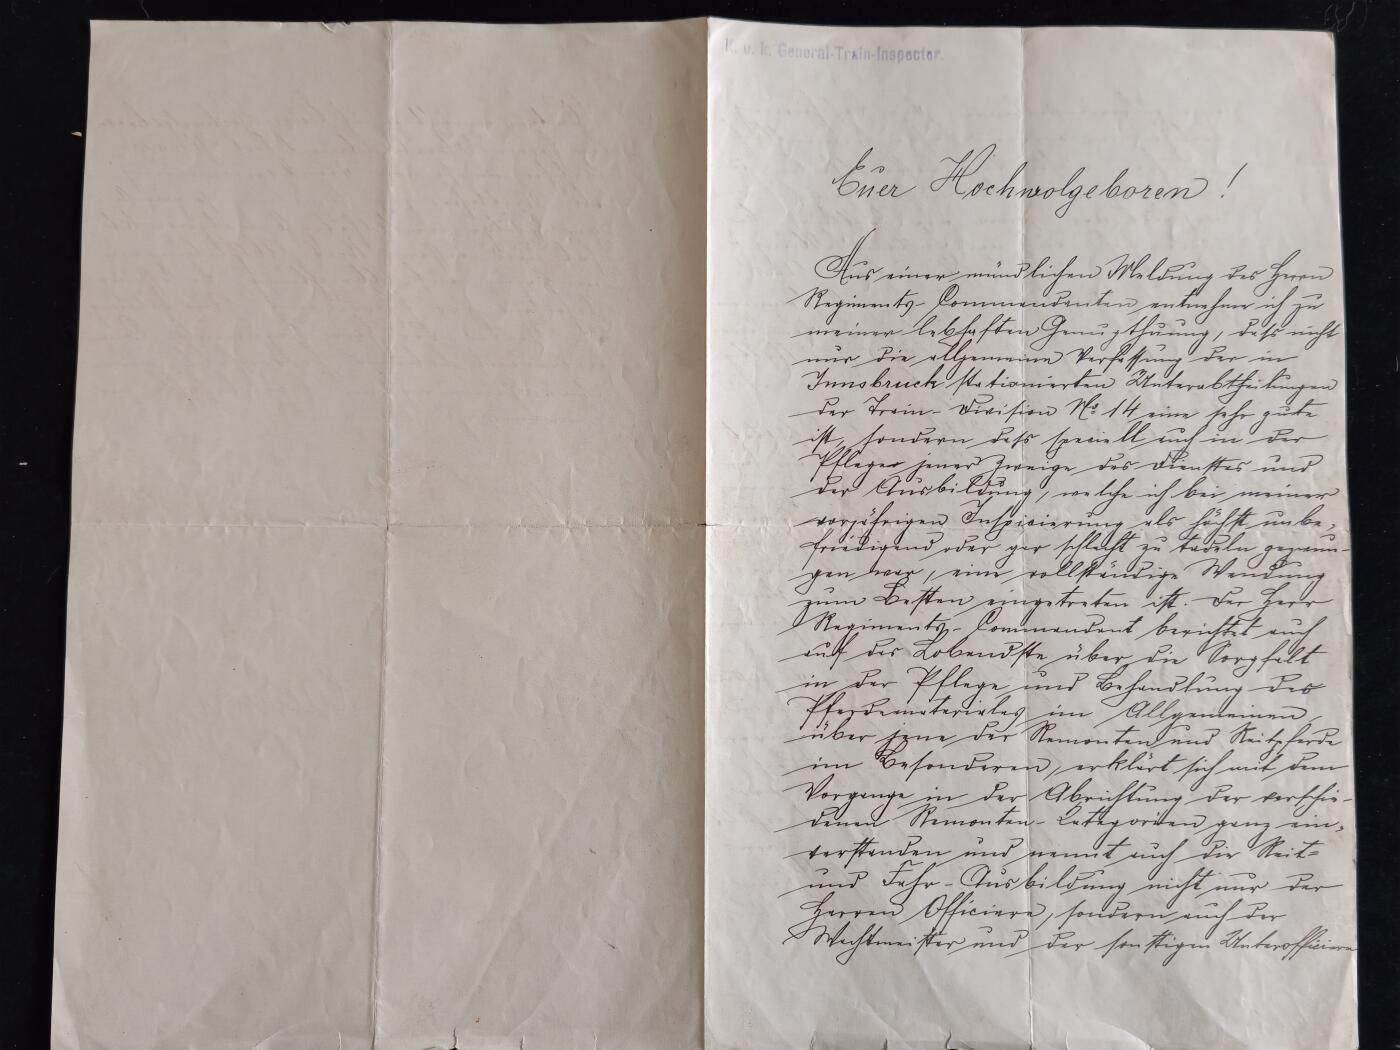 K. u. k. General-Train-Inspector.
Euer Hochwolgeboren!
Aus einer mündlichen Meldung des Herrn
Regiments-Commandanten entnehme ich zu
meiner lebhaften Genugthuung, daß nicht
nur die allgemeine Verfassung der in
Innsbruck stationierten Unterabtheilungen
der Train-Division No 14 eine sehr gute
ist, sondern daß speciell auch in der
Pflege jener Zweige des Dienstes und
der Ausbildung, welche ich bei meiner
vorjährigen Inspicierung als höchst unbe-
friedigend oder gar schlecht zu tadeln gezwun-
gen war, eine vollständige Wendung
zum Besten eingetreten ist. Der Herr
Regiments-Commandant berichtet auch
auf das Lobendste über die Sorgfalt
in der Pflege und Behandlung des
Pferdemateriales im Allgemeinen,
über jene der Remonten und Reitpferde
im Besonderen, erklärt sich mit dem
Vorgange in der Abrichtung der verschie-
denen Remonten-Categorien ganz ein-
verstanden und nennt auch die Reit-
und Fahr-Ausbildung nicht nur der
Herren Officiere, sondern auch der
Wachtmeister und der sonstigen Unterofficiere